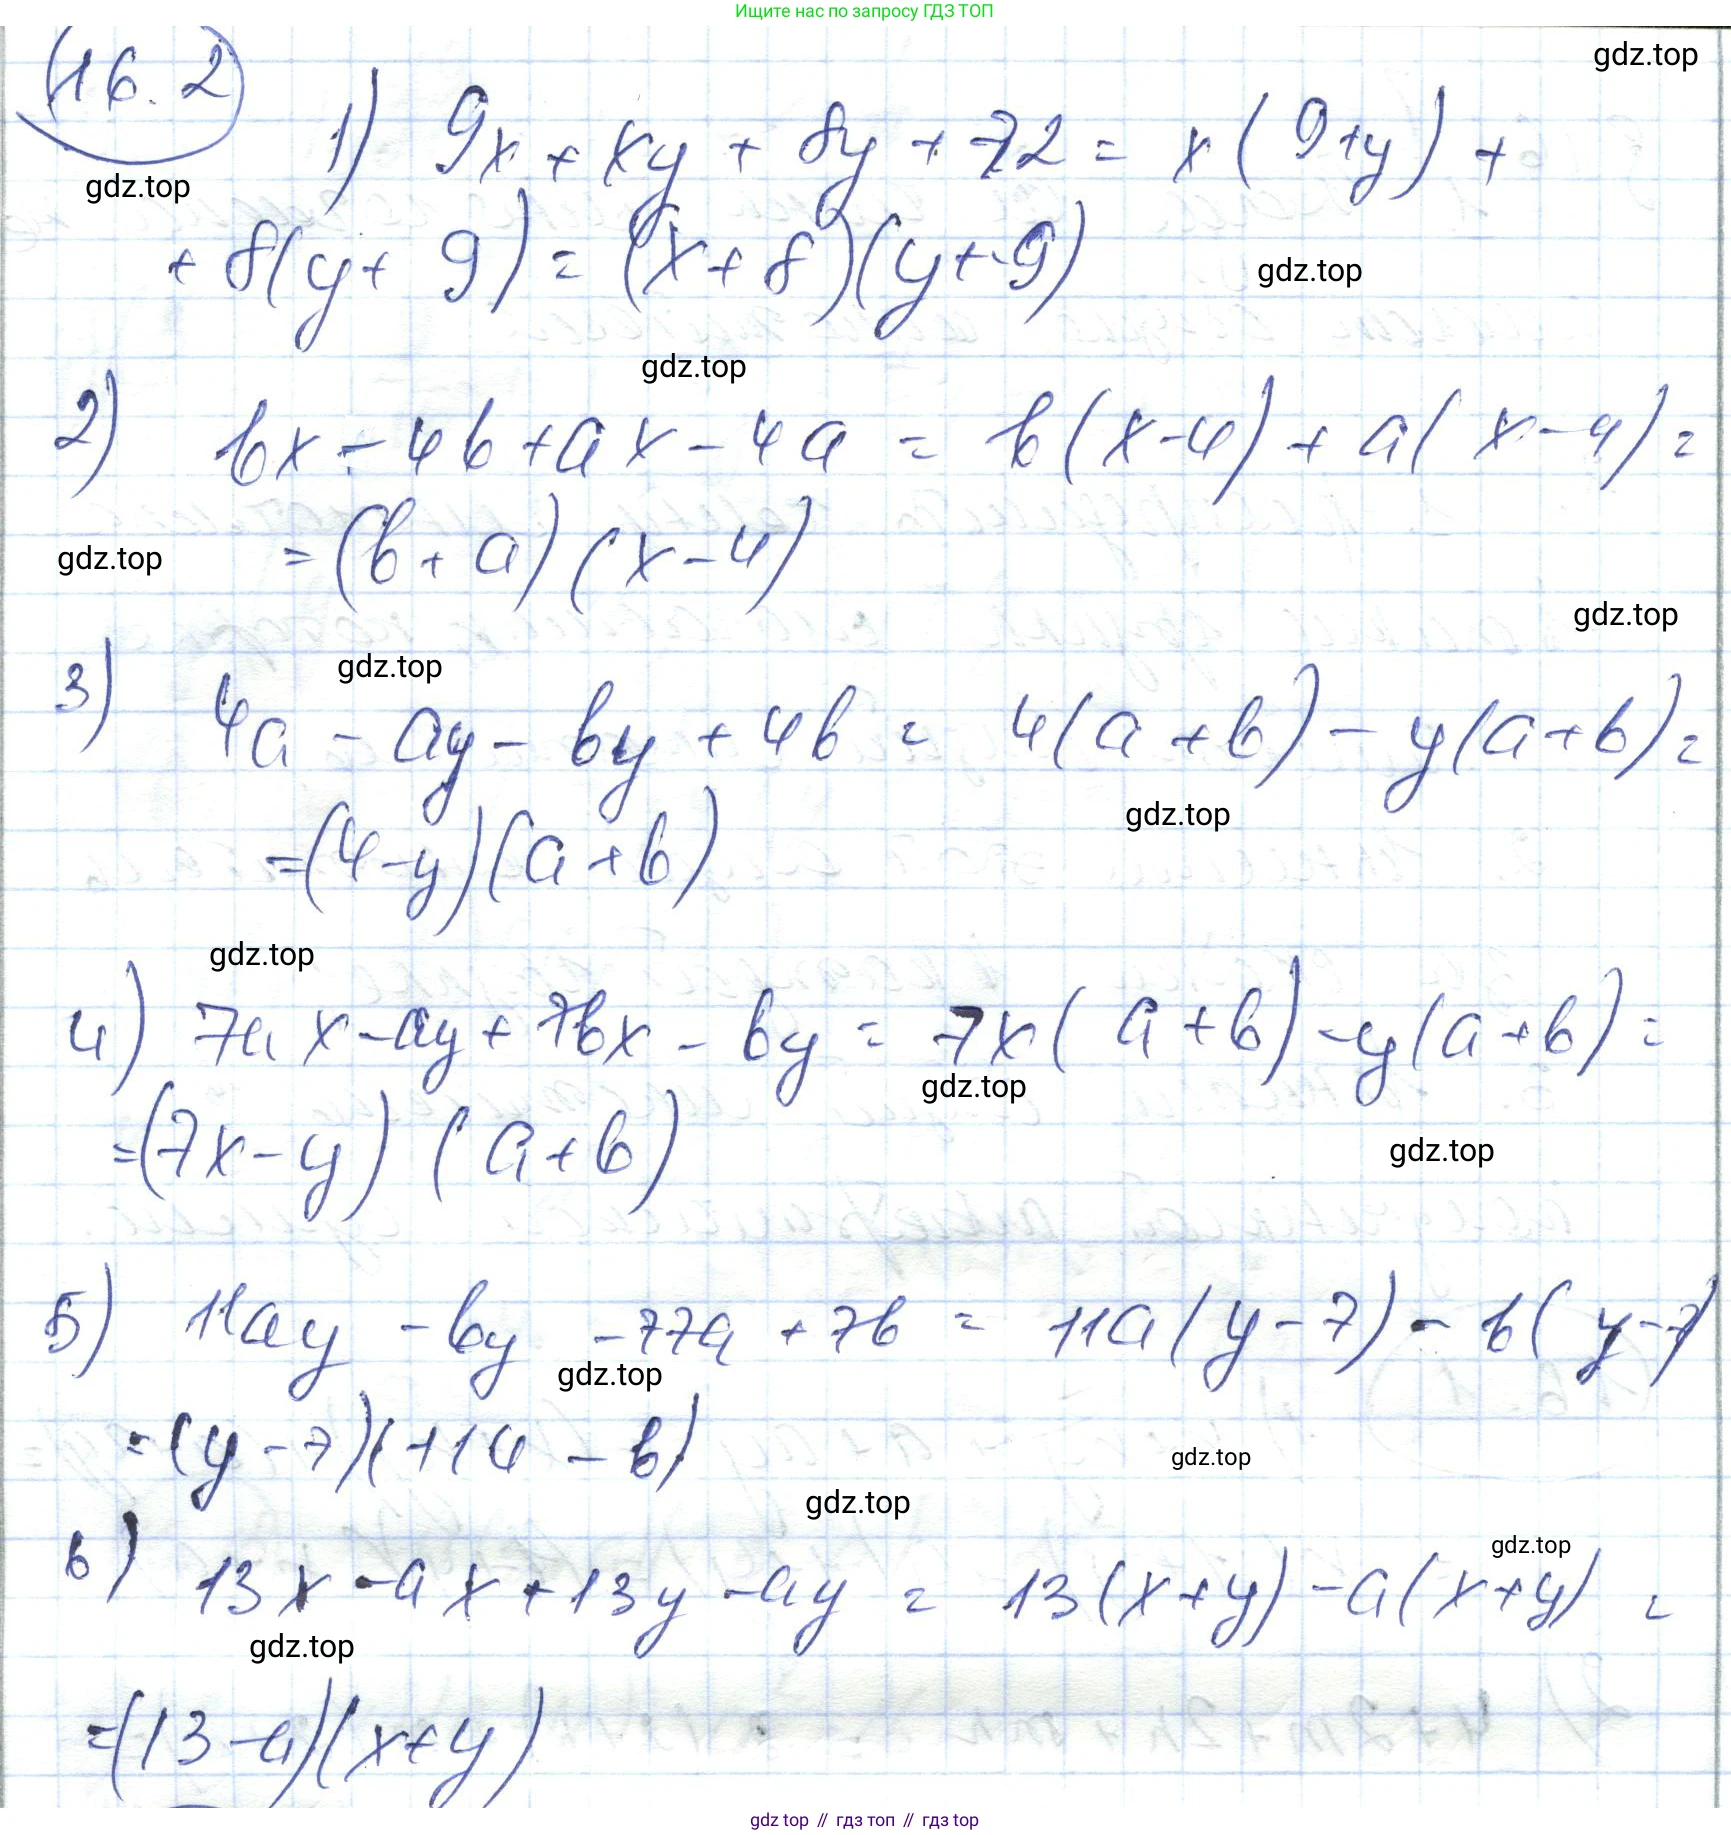 Ищите нас по запросу ГДЗ ТОП
16.2
gdz.top
1) 9x + xy + 8y + 72 = x(9+y) +
gdz.top
+ 8(y + 9) = (x + 8)(y + 9)
gdz.top
gdz.top
2) bx - 4b + ax - 4a = b(x-4) + a(x-4) =
= (b + a)(x - 4)
gdz.top
gdz.top
gdz.top
3) 4a - ay - by + 4b = 4(a + b) - y(a + b) =
gdz.top
= (4 - y)(a + b)
gdz.top
4) 7ax - ay + 7bx - by = 7x(a + b) - y(a + b) =
gdz.top
= (7x - y)(a + b)
gdz.top
5) 11ay - by - 77a + 7b = 11a(y - 7) - b(y - 7)
gdz.top
= (y - 7)(+11a - b)
gdz.top
gdz.top
gdz.top
6) 13x - ax + 13y - ay = 13(x + y) - a(x + y) =
gdz.top
= (13 - a)(x + y)
gdz top // гдз топ // gdz top